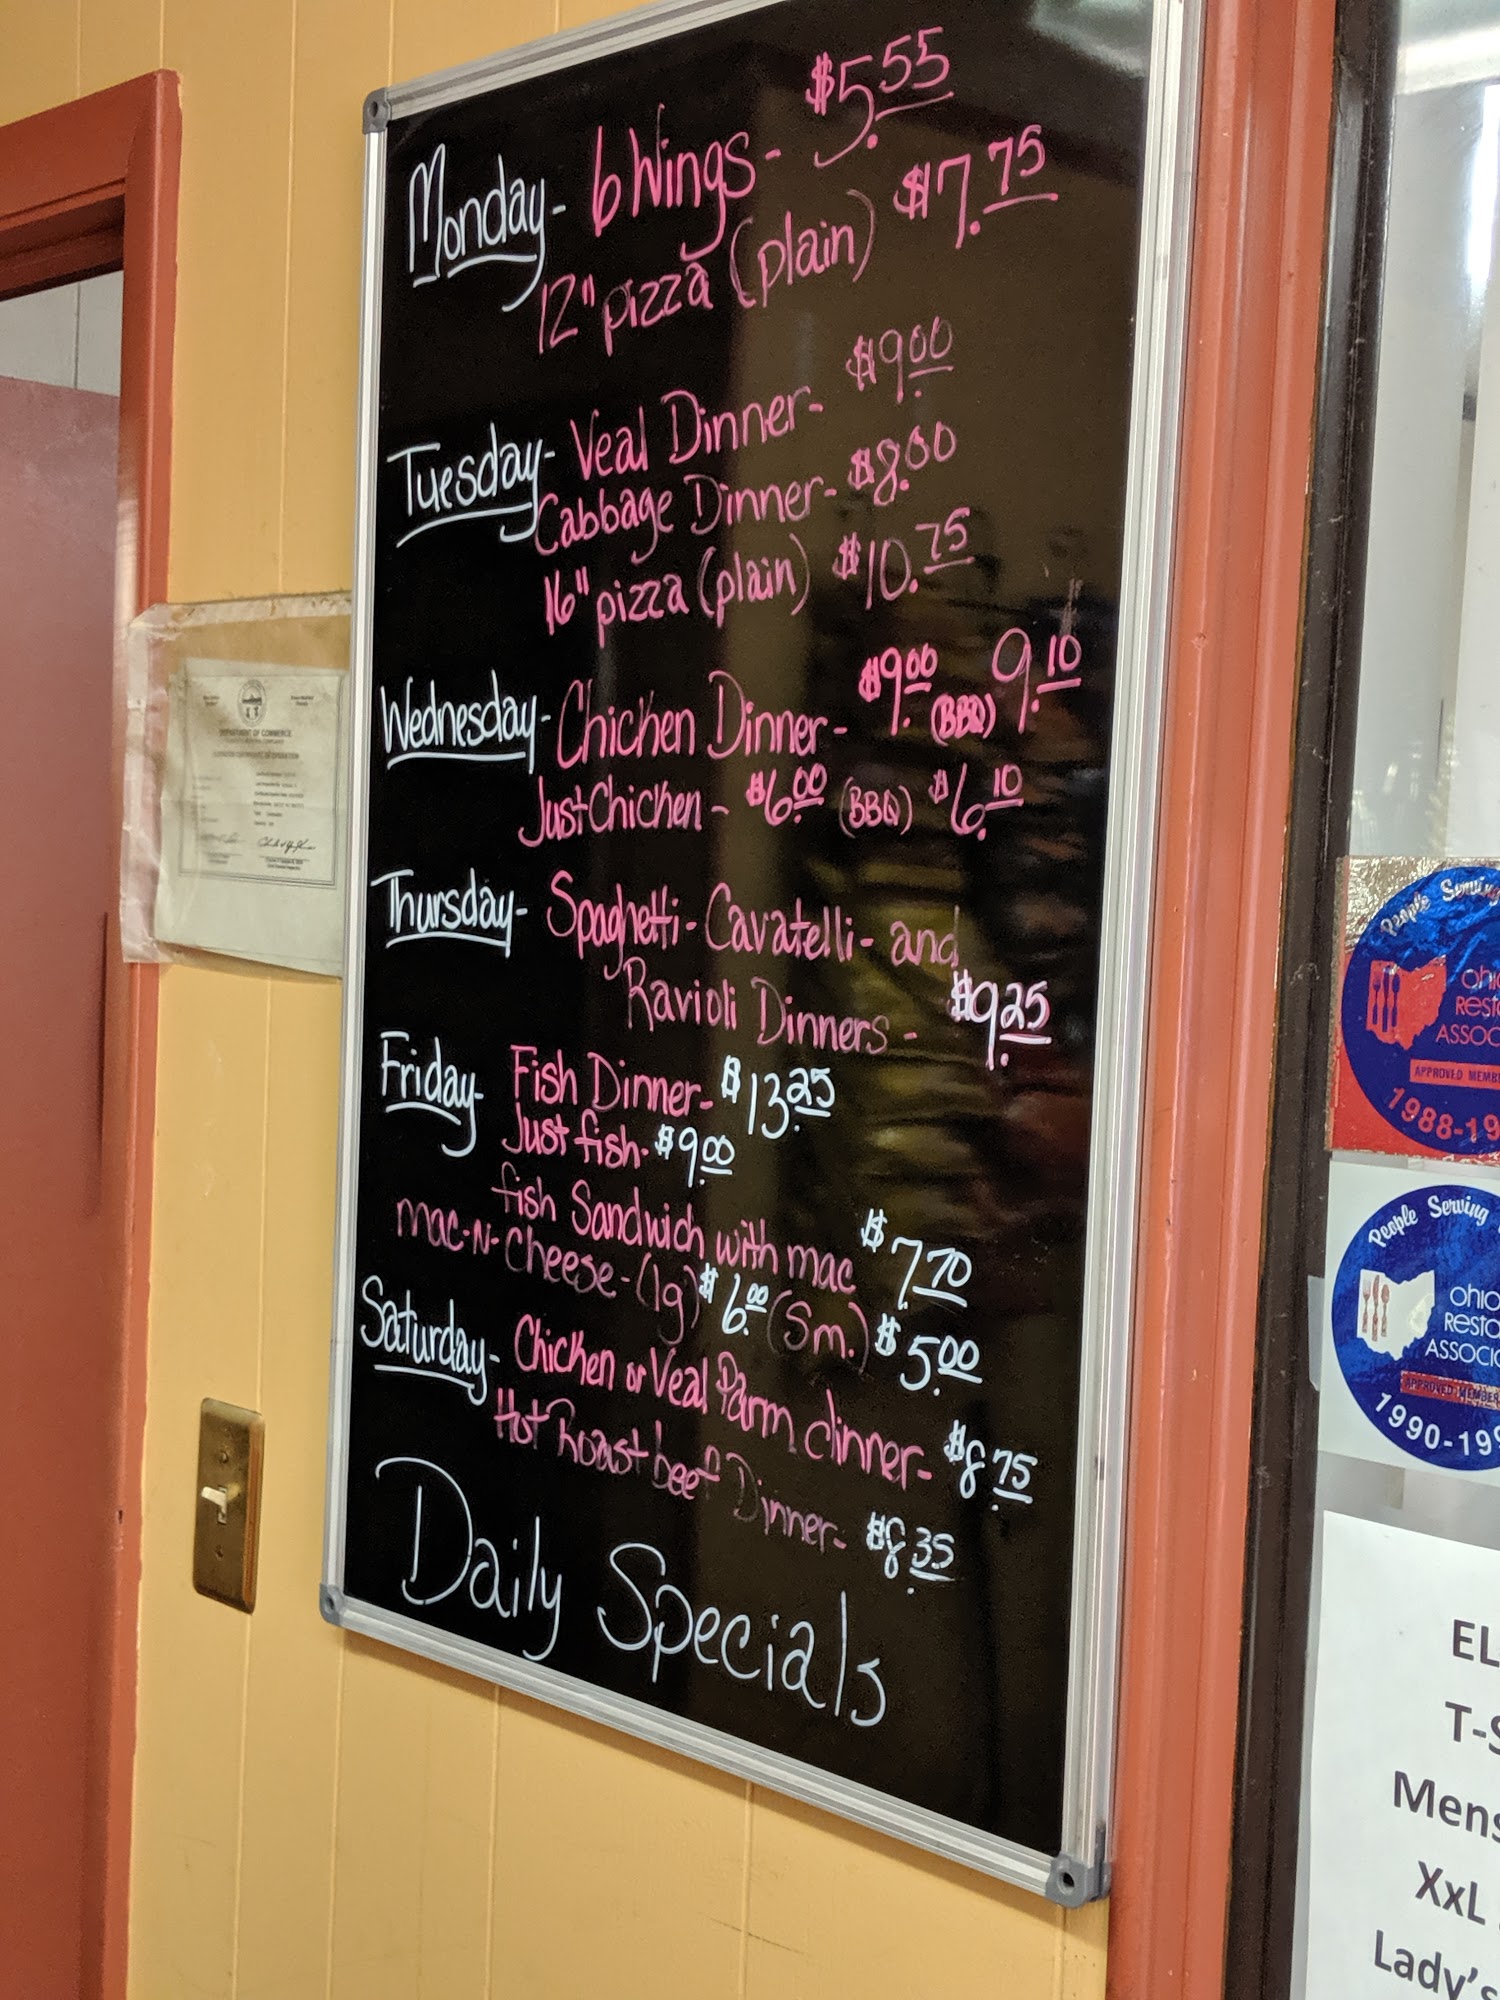 Monday- 6 Wings - $5.55
12" pizza (plain) $7.75
Tuesday- Veal Dinner- $9.00
Cabbage Dinner- $8.00
16" pizza (plain) $10.75
Wednesday- Chicken Dinner- $9.00 (BBQ) 9.10
Just Chicken - $6.00 (BBQ) $6.10
Thursday- Spaghetti- Cavatelli- and
Ravioli Dinners - $9.25
Friday- Fish Dinner- $13.25
Just fish- $9.00
fish Sandwich with mac $7.70
mac-N-Cheese-(lg) $6.00 (Sm.) $5.00
Saturday- Chicken or Veal Parm dinner- $8.75
Hot Roast beef Dinner- $8.35
Daily Specials
DEPARTMENT OF COMMERCE
People Serving
ASSOC
APPROVED
1988-19
People Serving
ASSOC
APPROVED
1990-19
EL
T-S
Mens
XxL
Lady's